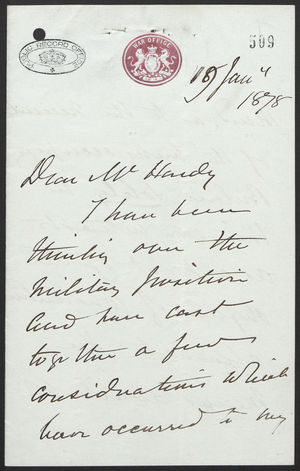 PUBLIC RECORD OFFICE
WAR OFFICE
509
19 Jany
1878
Dear Mr Hardy
I have been
thinking over the
Military Position
and have cast
together a few
considerations which
have occurred to my